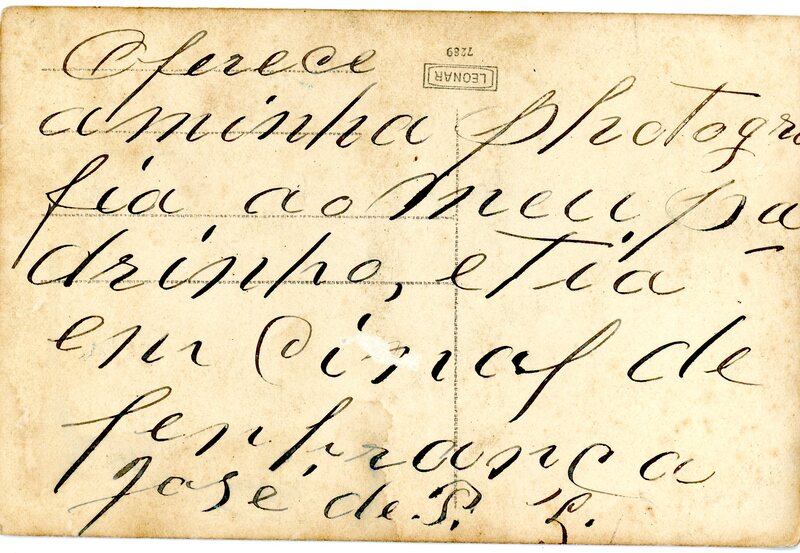 Oferece
aminha photogra
fia ao meu pa-
drinho, e tia
em Cinal de
lenbrança
José de P. L.
LEONAR
7289